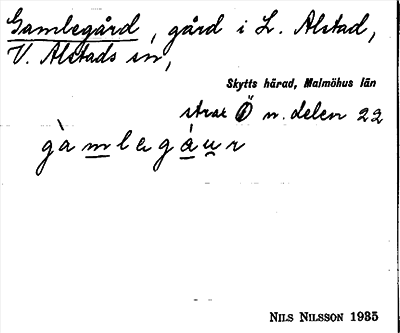 Gamlegård, gård i L. Alstad,
V. Alstads sn,
Skytts härad, Malmöhus län
strax Ö n. delen 22
gàmlegáur
NILS NILSSON 1935